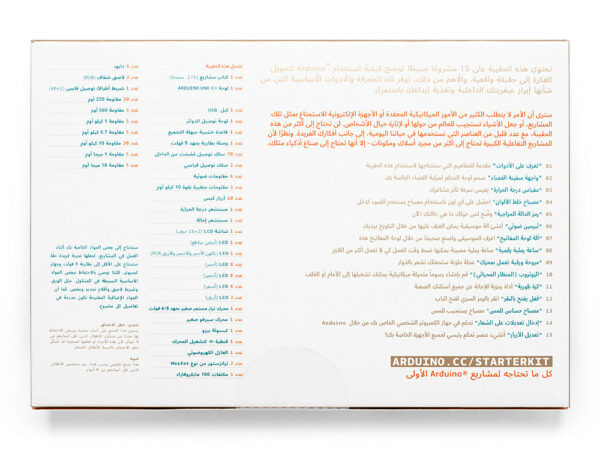 تحتوي هذه الحقيبة على 15 مشروعًا بسيطًا توضح كيفية استخدام Arduino® لتحويل
الفكرة إلى حقيقة واقعية. والأهم من ذلك، توفر لك المعرفة والأدوات الأساسية التي من
شأنها إبراز عبقريتك الداخلية وتغذية إبداعك باستمرار.
سترى أن الأمر لا يتطلب الكثير من الأمور الميكانيكية المعقدة أو الأجهزة الإلكترونية للاستمتاع بمثل تلك
المشاريع، أو جعل الأشياء تستجيب للعالم من حولها أو لإثارة خيال الأشخاص. لن تحتاج إلى أكثر من هذه
الحقيبة، مع عدد قليل من العناصر التي تستخدمها في حياتنا اليومية، إلى جانب أفكارك الفريدة. ونظرًا لأن
المشاريع التفاعلية الكبيرة تحتاج إلى أكثر من مجرد أسلاك ومكونات - إلا أنها تحتاج إلى صناع أذكياء مثلك.
01 "تعرف على الأدوات" مقدمة للمفاهيم التي ستحتاجها لاستخدام هذه الحقيبة
02 "واجهة سفينة الفضاء" صمم لوحة التحكم لمركبة الفضاء الخاصة بك
03 "مقياس درجة الحرارة" يقيس سرعة تأثر مشاعرك
04 "مصباح خلط الألوان" احصل على أي لون باستخدام مصباح يستخدم الضوء كدخل
05 "رمز الحالة المزاجية" وضّح لمن حولك ما هي حالتك الآن
06 "ثيرمين ضوئي" أنشئ آلة موسيقية يمكن العزف عليها من خلال التلويح بيديك
07 "آلة لوحة المفاتيح" اعزف الموسيقى واصنع ضجيجًا من خلال لوحة المفاتيح هذه
08 "ساعة رملية رقمية" ساعة رملية مضيئة يمكنها ضبط وقت العمل كي لا تعمل أكثر من اللازم
09 "مروحة ورقية تعمل بمحرك" عجلة ملونة ستجعلك تشعر بالدوار
10 "الزوتروب (المنظار الحياني)" قم بإنشاء رسوماً متحركة ميكانيكية يمكنك تشغيلها إلى الأمام أو الخلف
11 "كرة بلورية" أداة رمزية للإجابة عن جميع أسئلتك الصعبة
12 "قفل يفتح بالنقر" انقر بالرمز السري لفتح الباب
13 "مصباح حساس للمس" مصباح يستجيب للمس
14 "إدخال تعديلات على الشعار" تحكم في جهاز الكمبيوتر الشخصي الخاص بك من خلال Arduino
15 "تعديل الأزرار" أنشئ عنصر تحكم رئيسي لجميع الأجهزة الخاصة بك!
ARDUINO.CC/STARTERKIT
كل ما تحتاجه لمشاريع Arduino® الأولى
تشمل هذه الحقيبة
عدد 1 كتاب مشاريع (176 صفحة)
عدد 1 لوحة ARDUINO UNO R3
عدد 1 كبل USB
عدد 1 لوحة توصيل الدوائر
عدد 1 قاعدة خشبية سهلة التجميع
عدد 1 وصلة بطارية بجهد 9 فولت
عدد 70 سلك توصيل مُصمت من الداخل
عدد 2 سلك توصيل قياسي
عدد 6 مقاومات ضوئية
عدد 3 مقاومات متغيرة بقوة 10 كيلو أوم
عدد 10 أزرار كبس
عدد 1 مستشعر درجة الحرارة
عدد 1 مستشعر إمالة
عدد 1 شاشة LCD (16x2 حرف)
عدد 1 LED (أبيض ساطع)
عدد 1 LED (باللون الأحمر والأخضر والأزرق RGB)
عدد 8 LED (أحمر)
عدد 8 LED (أخضر)
عدد 8 LED (أصفر)
عدد 3 LED (أزرق)
عدد 1 محرك تيار مستمر صغير بجهد 6/9 فولت
عدد 1 محرك سيرفو صغير
عدد 1 كبسولة بيزو
عدد 1 قنطرة-H لتشغيل المحرك
عدد 1 العازل الكهروضوئي
عدد 2 ترانزستور من نوع Mosfet
عدد 3 مكثفات 100 مايكروفاراد
عدد 5 دايود
عدد 3 لاصق شفاف (RGB)
عدد 1 شريط أطراف توصيل قابس (40x1)
عدد 20 مقاومة 220 أوم
عدد 5 مقاومة 560 أوم
عدد 5 مقاومة 1 كيلو أوم
عدد 5 مقاومة 4.7 كيلو أوم
عدد 20 مقاومة 10 كيلو أوم
عدد 5 مقاومة 1 ميجا أوم
عدد 5 مقاومة 10 ميجا أوم
ستحتاج إلى بعض المواد الخاصة بك أثناء
العمل في المشاريع. لجعلها تجربة رائعة حقًا
ستحتاج على الأقل إلى بطارية 9 فولت وجهاز
كمبيوتر. كما